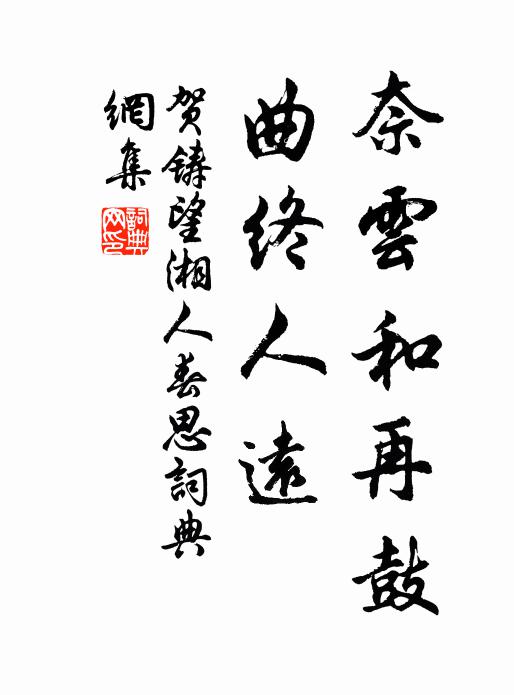 奈雲和再鼓
曲终人遠
贺鑄望湘人春思詞典
網集
詞典
网印